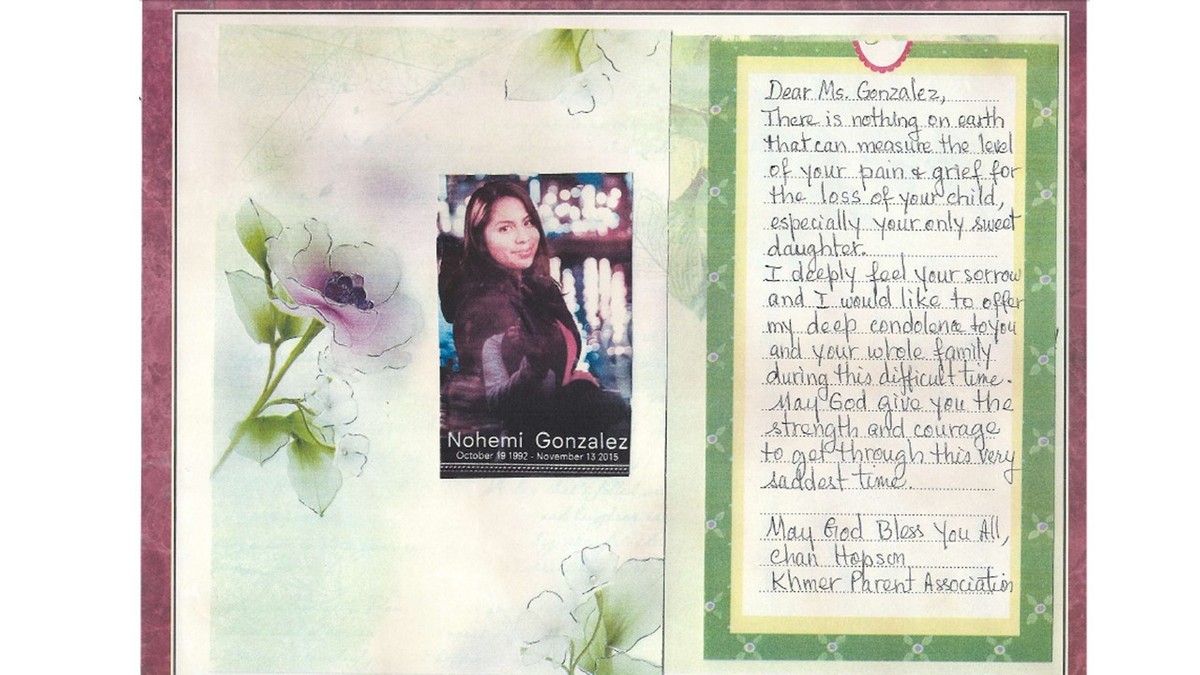 Nohemi Gonzalez
October 19 1992 - November 13 2015
Dear Ms. Gonzalez,
There is nothing on earth
that can measure the level
of your pain & grief for
the loss of your child,
especially your only sweet
daughter.
I deeply feel your sorrow
and I would like to offer
my deep condolence to you
and your whole family
during this difficult time.
May God give you the
strength and courage
to get through this very
saddest time.
May God Bless You All,
Chan Hopson
Khmer Parent Association